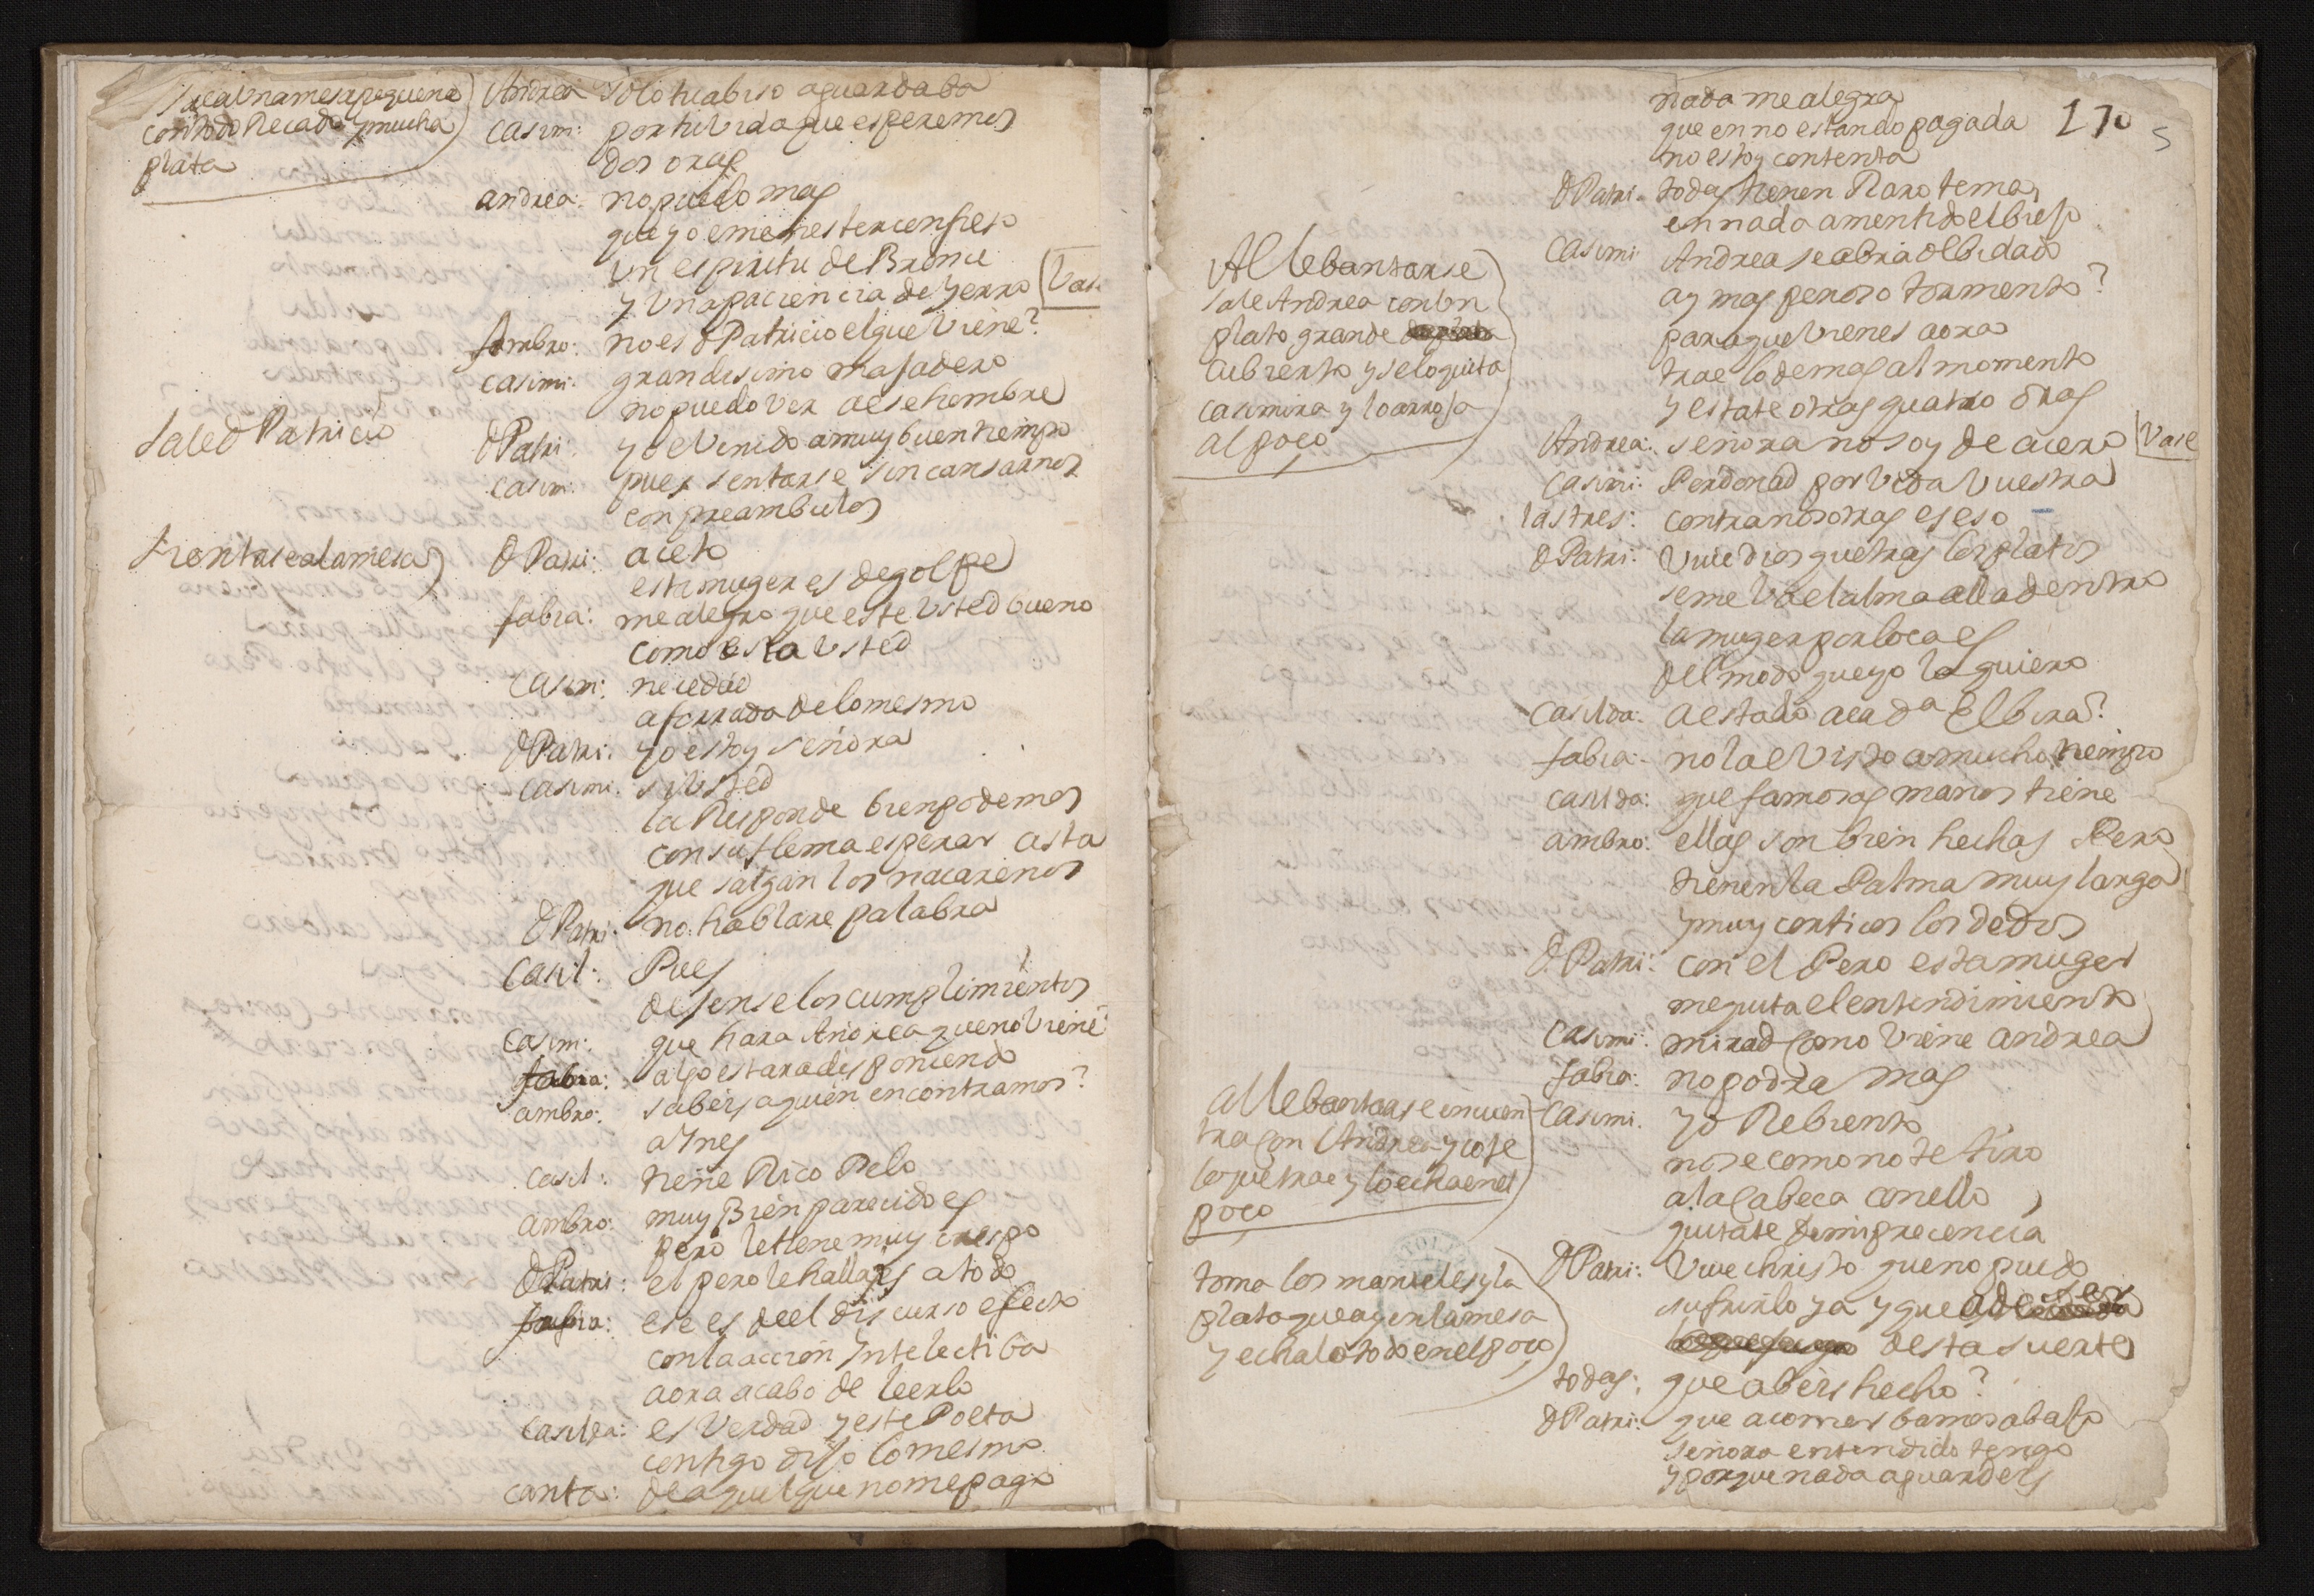 sacan una mesa pequena
con todo Recado y mucha
plata
Andrea solo tu abiso aguardaba
Casim: por tu vida que esperemos
dos oras
andrea: no puedo mas
que yo e menester confieso
un espiritu de Bronce
y una paciencia de yerro Vase
Ambro: no es D Patricio el que viene?
Casimi: grandisimo majadero
no puedo ver a ese hombre
Sale D Patricio
D Patri: yo e venido a muy buen tiempo
Casim: pues sentarse sin cansarnos
con preambulos
sientase a la mesa
D Patri: aceto
esta muger es de golpe
fabia: me alegro que este usted bueno
como esta usted
Casim: necedad
aforrada de lo mesmo
D Patri: yo estoy señora
Casimi: si usted
la Responde bien podemos
con su flema esperar asta
que salgan los nacarenos
D Patri: no hablare palabra
Casil: Pues
dejense los cumplimientos
Casim: que hara Andrea que no viene
fabia: algo estara disponiendo
ambro: sabeis a quien encontramos?
a Ynes
Casil: tiene Rico Pelo
ambro: muy Bien parecido es
pero le tiene muy crespo
D Patri: el pero le hallais a todo
fabia: ese es de el discurso efecto
con la accion Yntelectiba
aora acabo de leerlo
Casilda: es verdad y este Poeta
contigo dijo lo mesmo
canta: de aquel que no me paga
nada me alegra
que en no estando pagada
no estoy contenta
170
5
D Patri: todas tienen Raro tema
en nada a mentido el biejo
Casimi: Andrea se abra olbidado
ay mas penoso tormento?
para que vienes aora
trae lo demas al momento
y estate otras quatro oras
Al lebantarse
sale Andrea con un
plato grande
cubierto y se lo quita
Casimira y lo arroja
al poço
Andrea: señora no soy de acero Vase
Casimi: Perdonad por vida vuestra
las tres: contra nosotras es eso
D Patri: vive dios que tras los platos
se me va el alma alla dentro
la muger por loca es
del modo que yo la quiero
Casilda: a estado aca Da Elbira?
fabia: no la e visto a mucho tiempo
Casilda: que famosas manos tiene
ambro: ellas son bien hechas Pero
tienen la Palma muy larga
y muy corticos los dedos
D Patri: con el Pero esta muger
me quita el entendimiento
Casimi: mirad como viene andrea
fabia: no podra mas
Casimi: yo Rebiento
no se como no te tiro
a la cabeca con ello
quitate de mi precencia
al lebantarse encuen
tra con Andrea y coje
lo que trae y lo echa en el
poço
D Patri: vive christo que no puedo
sufrirlo ya y que
desta suerte
toma los manteles y la
plata que ay en la mesa
y echalo todo en el poço
todas: que abeis hecho?
D Patri: que a comer bamos abajo
señora entendido tengo
y porque nada aguardeis